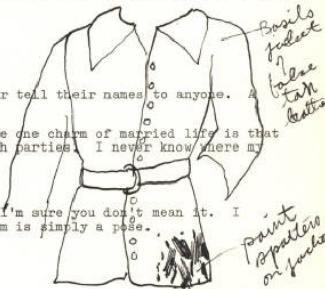 Basils
jacket
of
false
tan
leather
r tell their names to anyone. A
e one charm of married life is that
h parties. I never know where my
I'm sure you don't mean it. I
m is simply a pose.
paint
spatters
on jacket